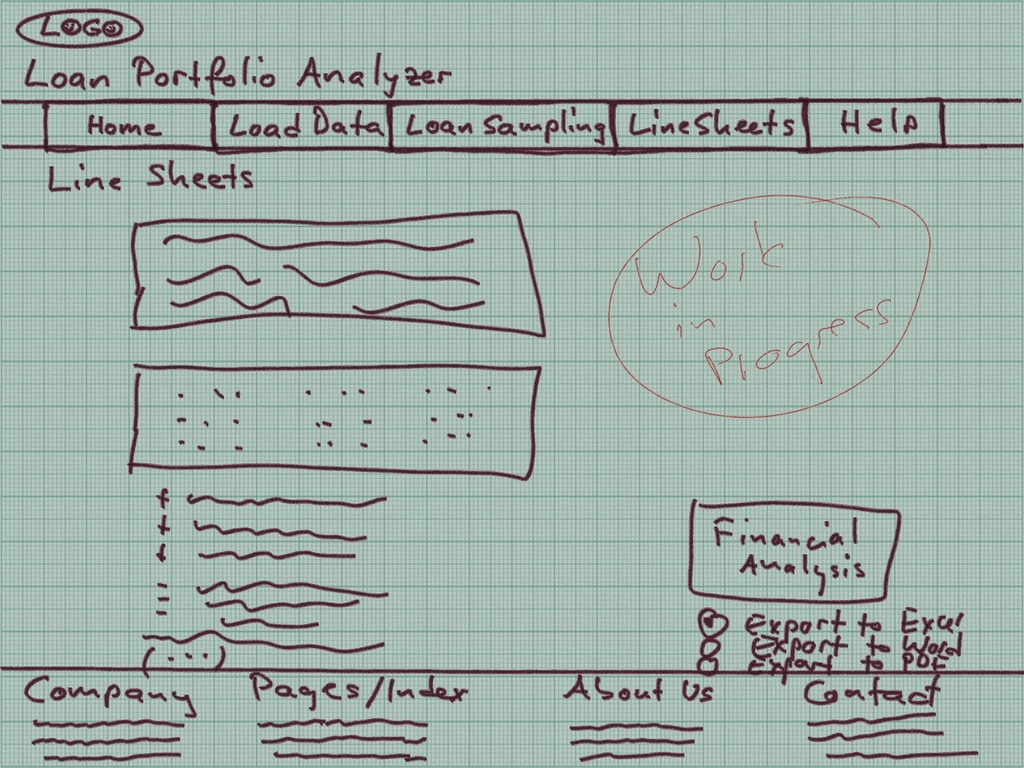 LOGO
Loan Portfolio Analyzer
Home
Load Data
Loan Sampling
Line Sheets
Help
Line Sheets
Work
in
Progress
+
+
+
-
=
(...)
Financial
Analysis
Export to Excel
Export to Word
Export to PDF
Company
Pages/Index
About Us
Contact